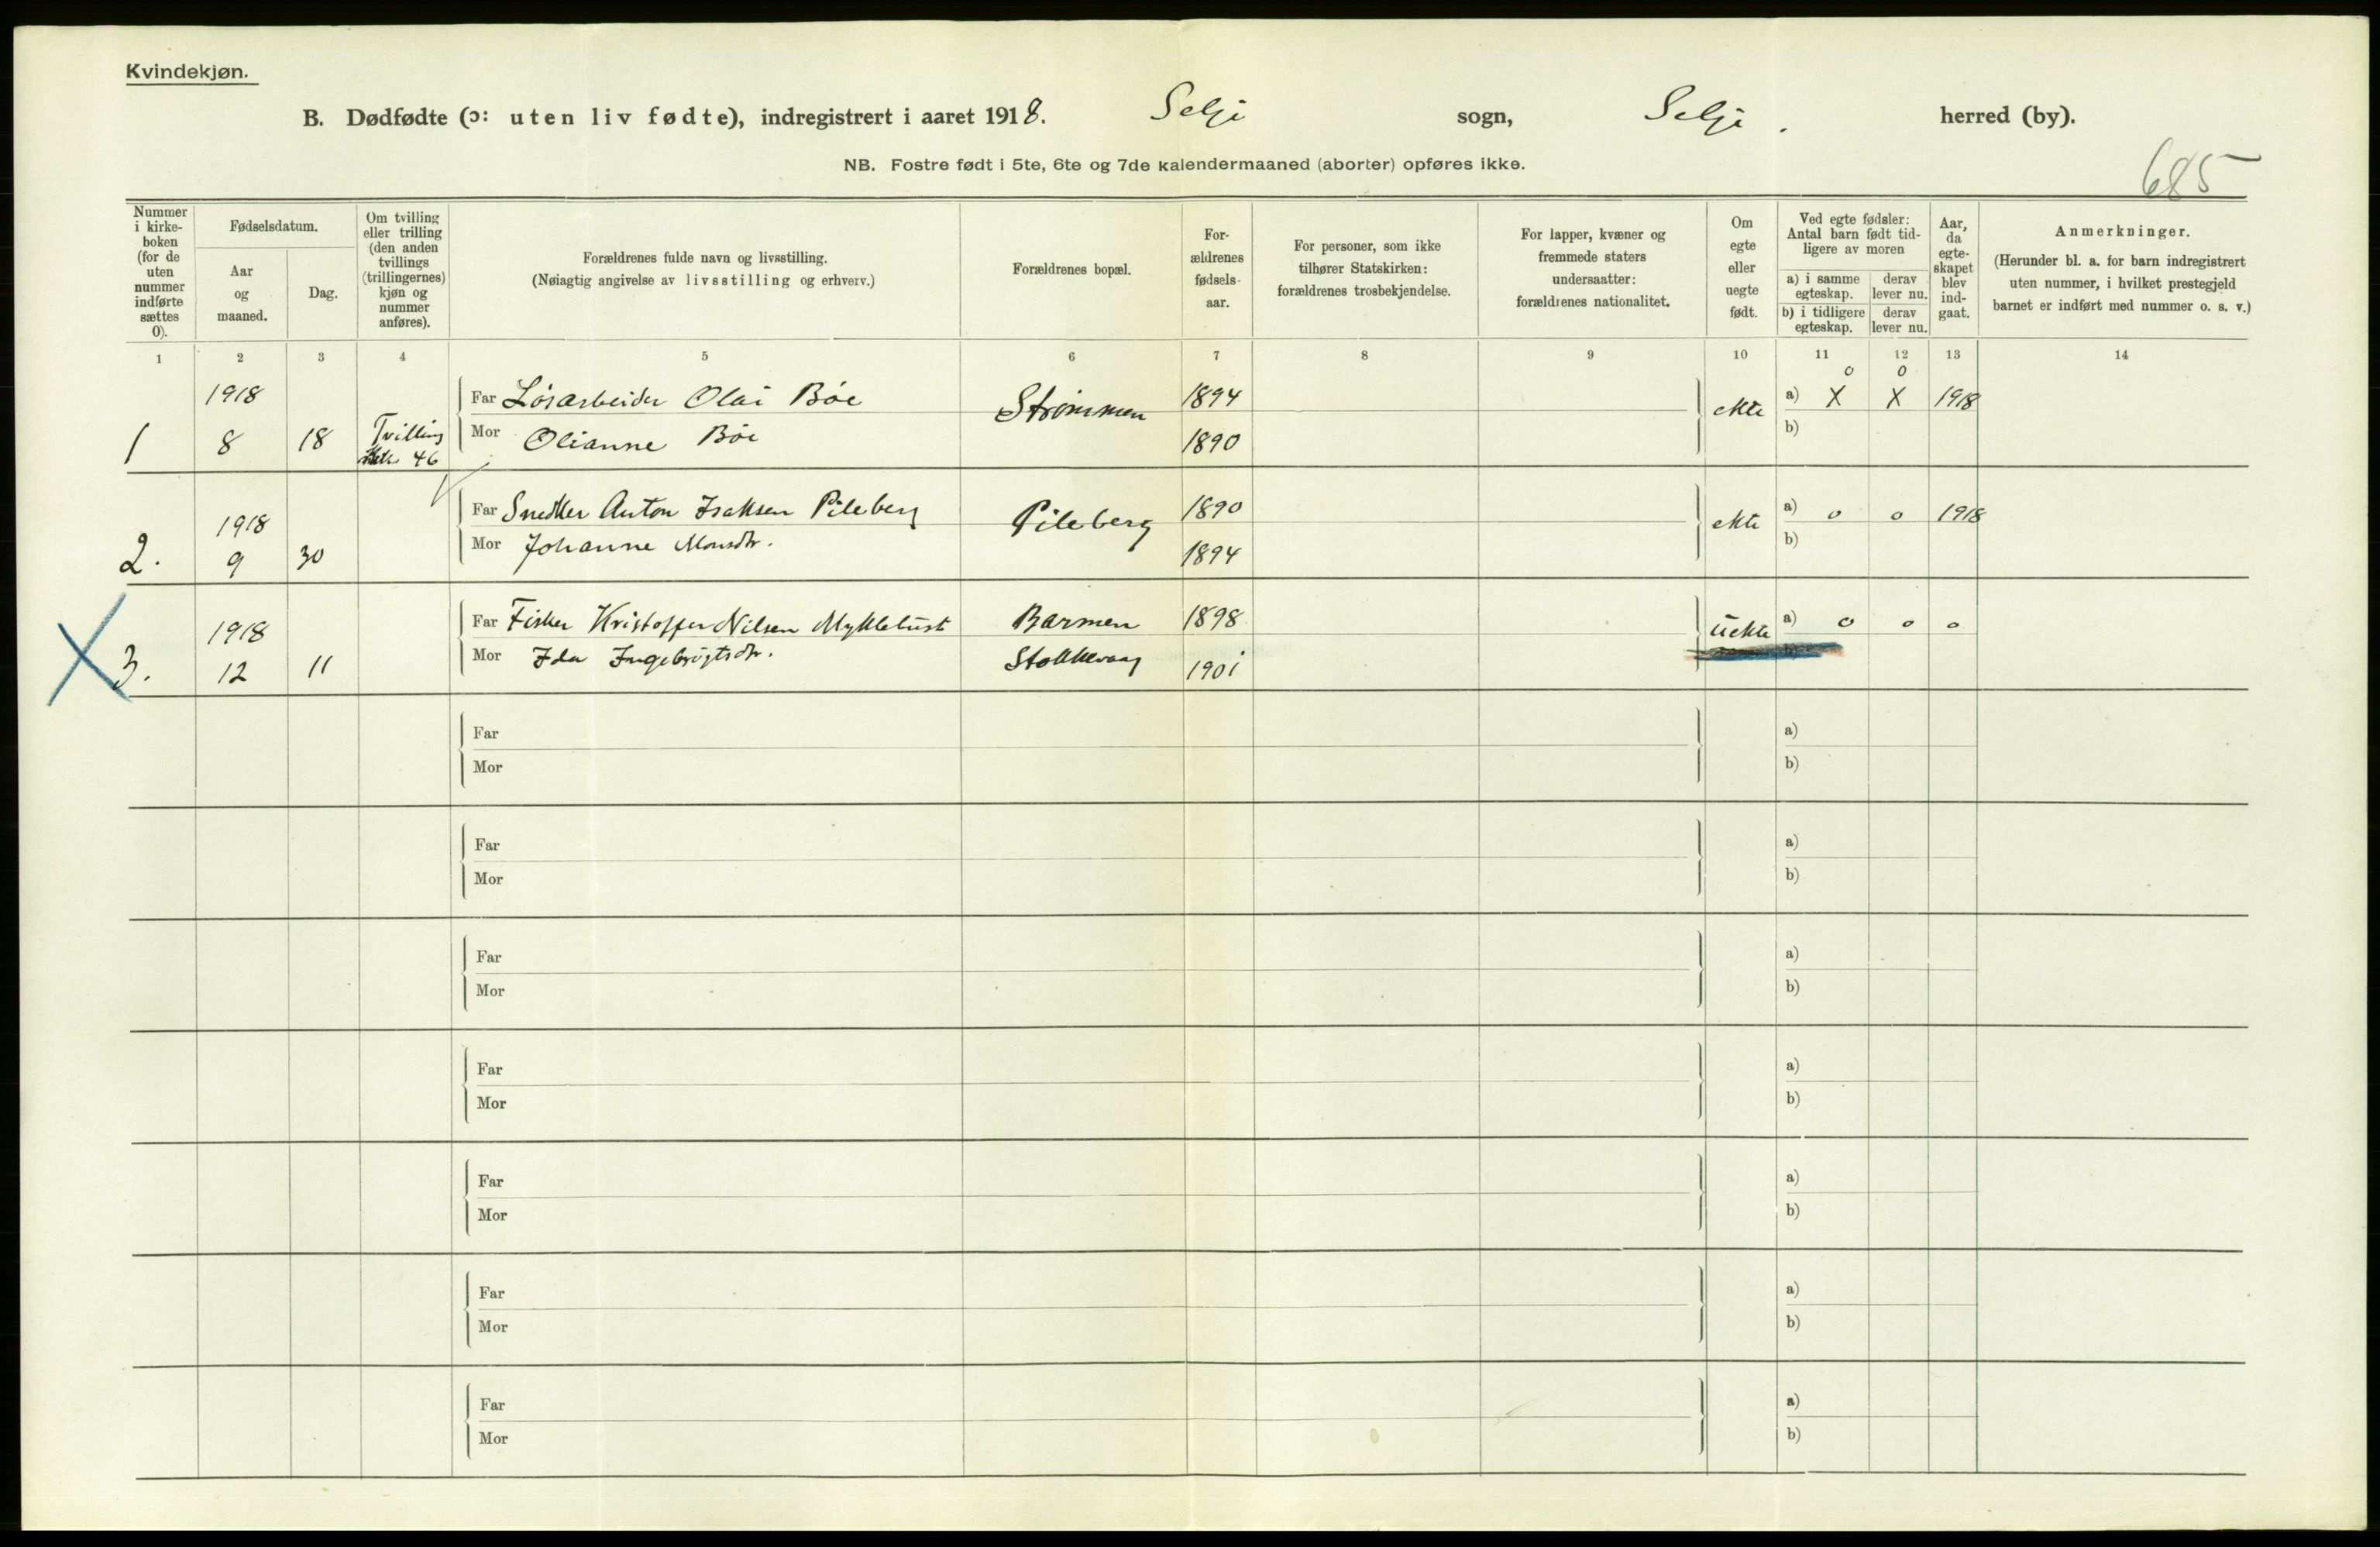 Kvindekjøn.
B. Dødfødte (ɔ: uten liv fødte), indregistrert i aaret 1918. Selje sogn, Selje. herred (by).
NB. Fostre født i 5te, 6te og 7de kalendermaaned (aborter) opføres ikke.
685
Nummer i kirke-boken (for de uten nummer indførte sættes 0).
Fødselsdatum.
Aar og maaned.
Dag.
Om tvilling eller trilling (den anden tvillings (trillingernes) kjøn og nummer anføres).
Forældrenes fulde navn og livsstilling.
(Nøiagtig angivelse av livsstilling og erhverv.)
Forældrenes bopæl.
For-ældrenes fødsels-aar.
For personer, som ikke tilhører Statskirken: forældrenes trosbekjendelse.
For lapper, kvæner og fremmede staters undersaatter: forældrenes nationalitet.
Om egte eller uegte født.
Ved egte fødsler: Antal barn født tid-ligere av moren
a) i samme egteskap.
derav lever nu.
b) i tidligere egteskap.
derav lever nu.
Aar, da egte-skapet blev ind-gaat.
Anmerkninger.
(Herunder bl. a. for barn indregistrert uten nummer, i hvilket prestegjeld barnet er indført med nummer o. s. v.)
1 2 3 4 5 6 7 8 9 10 11 12 13 14
o o
1918 Far Løsarbeider Olai Böe Strömmen 1894 ekte a) X X 1918
1 8 18 Tvilling 46 Mor Olianne Böe 1890 b)
1918 Far Snedker Anton Isaksen Pileberg Pileberg 1890 ekte a) o o 1918
2. 9 30 Mor Johanne Monsdtr. 1894 b)
1918 Far Fisker Kristoffer Nilsen Myklebust Barmen 1898 uekte a) o o o
3. 12 11 Mor Ida Ingebrigtsdtr. Stokkevaag 1901
Far a)
Mor b)
Far a)
Mor b)
Far a)
Mor b)
Far a)
Mor b)
Far a)
Mor b)
Far a)
Mor b)
Far a)
Mor b)